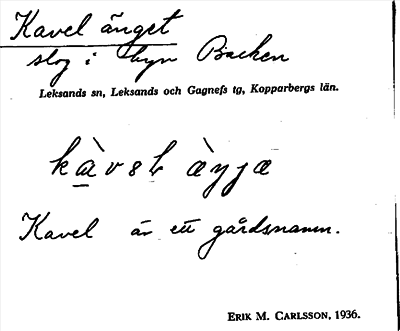 Kavel änget
slog i byn Backen
Leksands sn, Leksands och Gagnefs tg, Kopparbergs län.
Kavel är ett gårdsnamn.
ERIK M. CARLSSON, 1936.